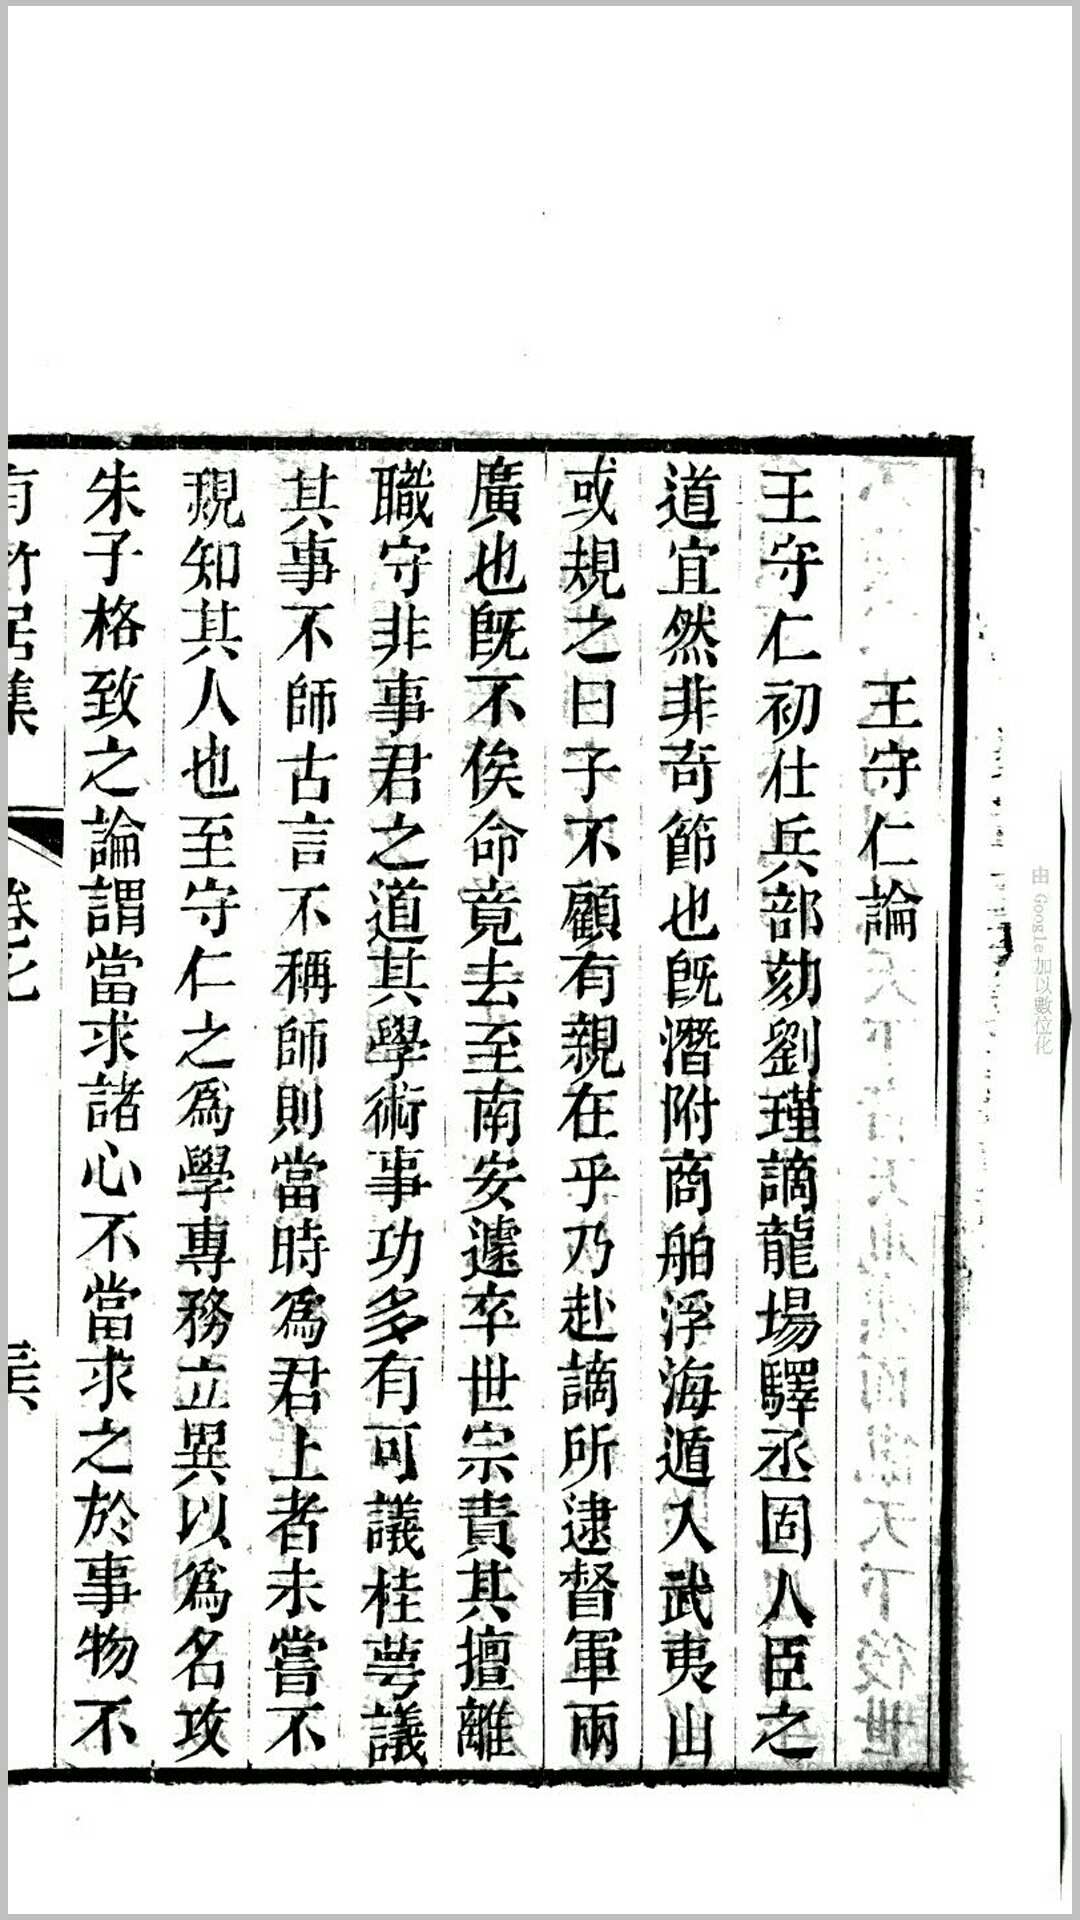 王守仁論
王守仁初仕兵部劾劉瑾謫龍場驛丞固人臣之
道宜然非奇節也旣潛附商舶浮海遁入武夷山
或規之曰子不顧有親在乎乃赴謫所逮督軍兩
廣也旣不俟命竟去至南安遽卒世宗責其擅離
職守非事君之道其學術事功多有可議桂萼議
其事不師古言不稱師則當時爲君上者未嘗不
覘知其人也至守仁之爲學專務立異以爲名攻
朱子格致之論謂當求諸心不當求之於事物不
有竹居集
卷七
由 Google 加以數位化